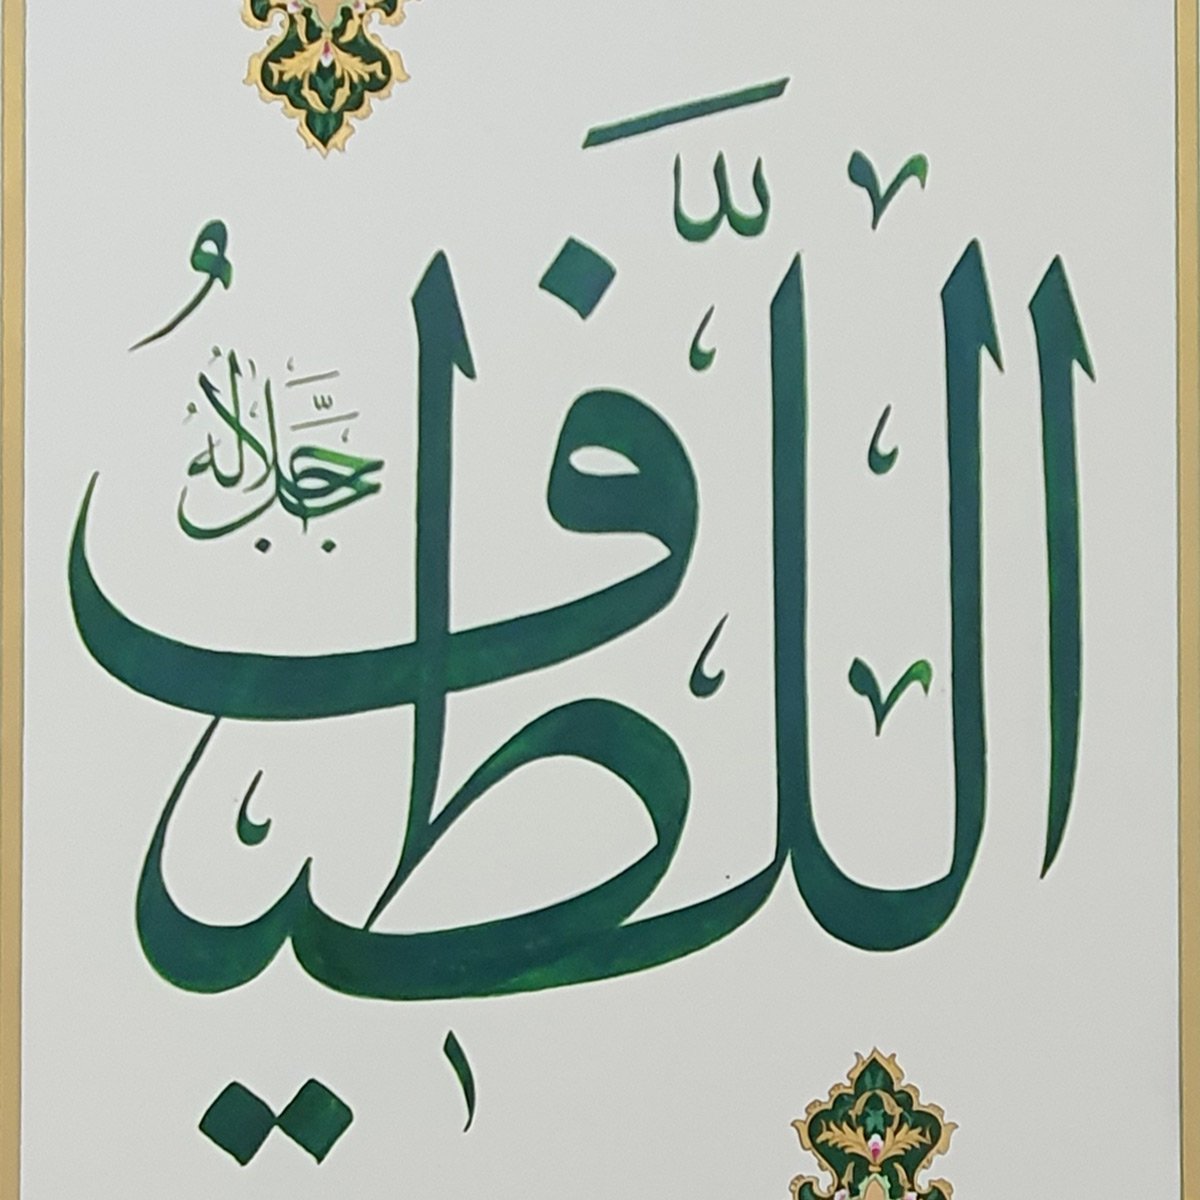 اللَّطِيفُ
جَلَّ جَلَالُهُ